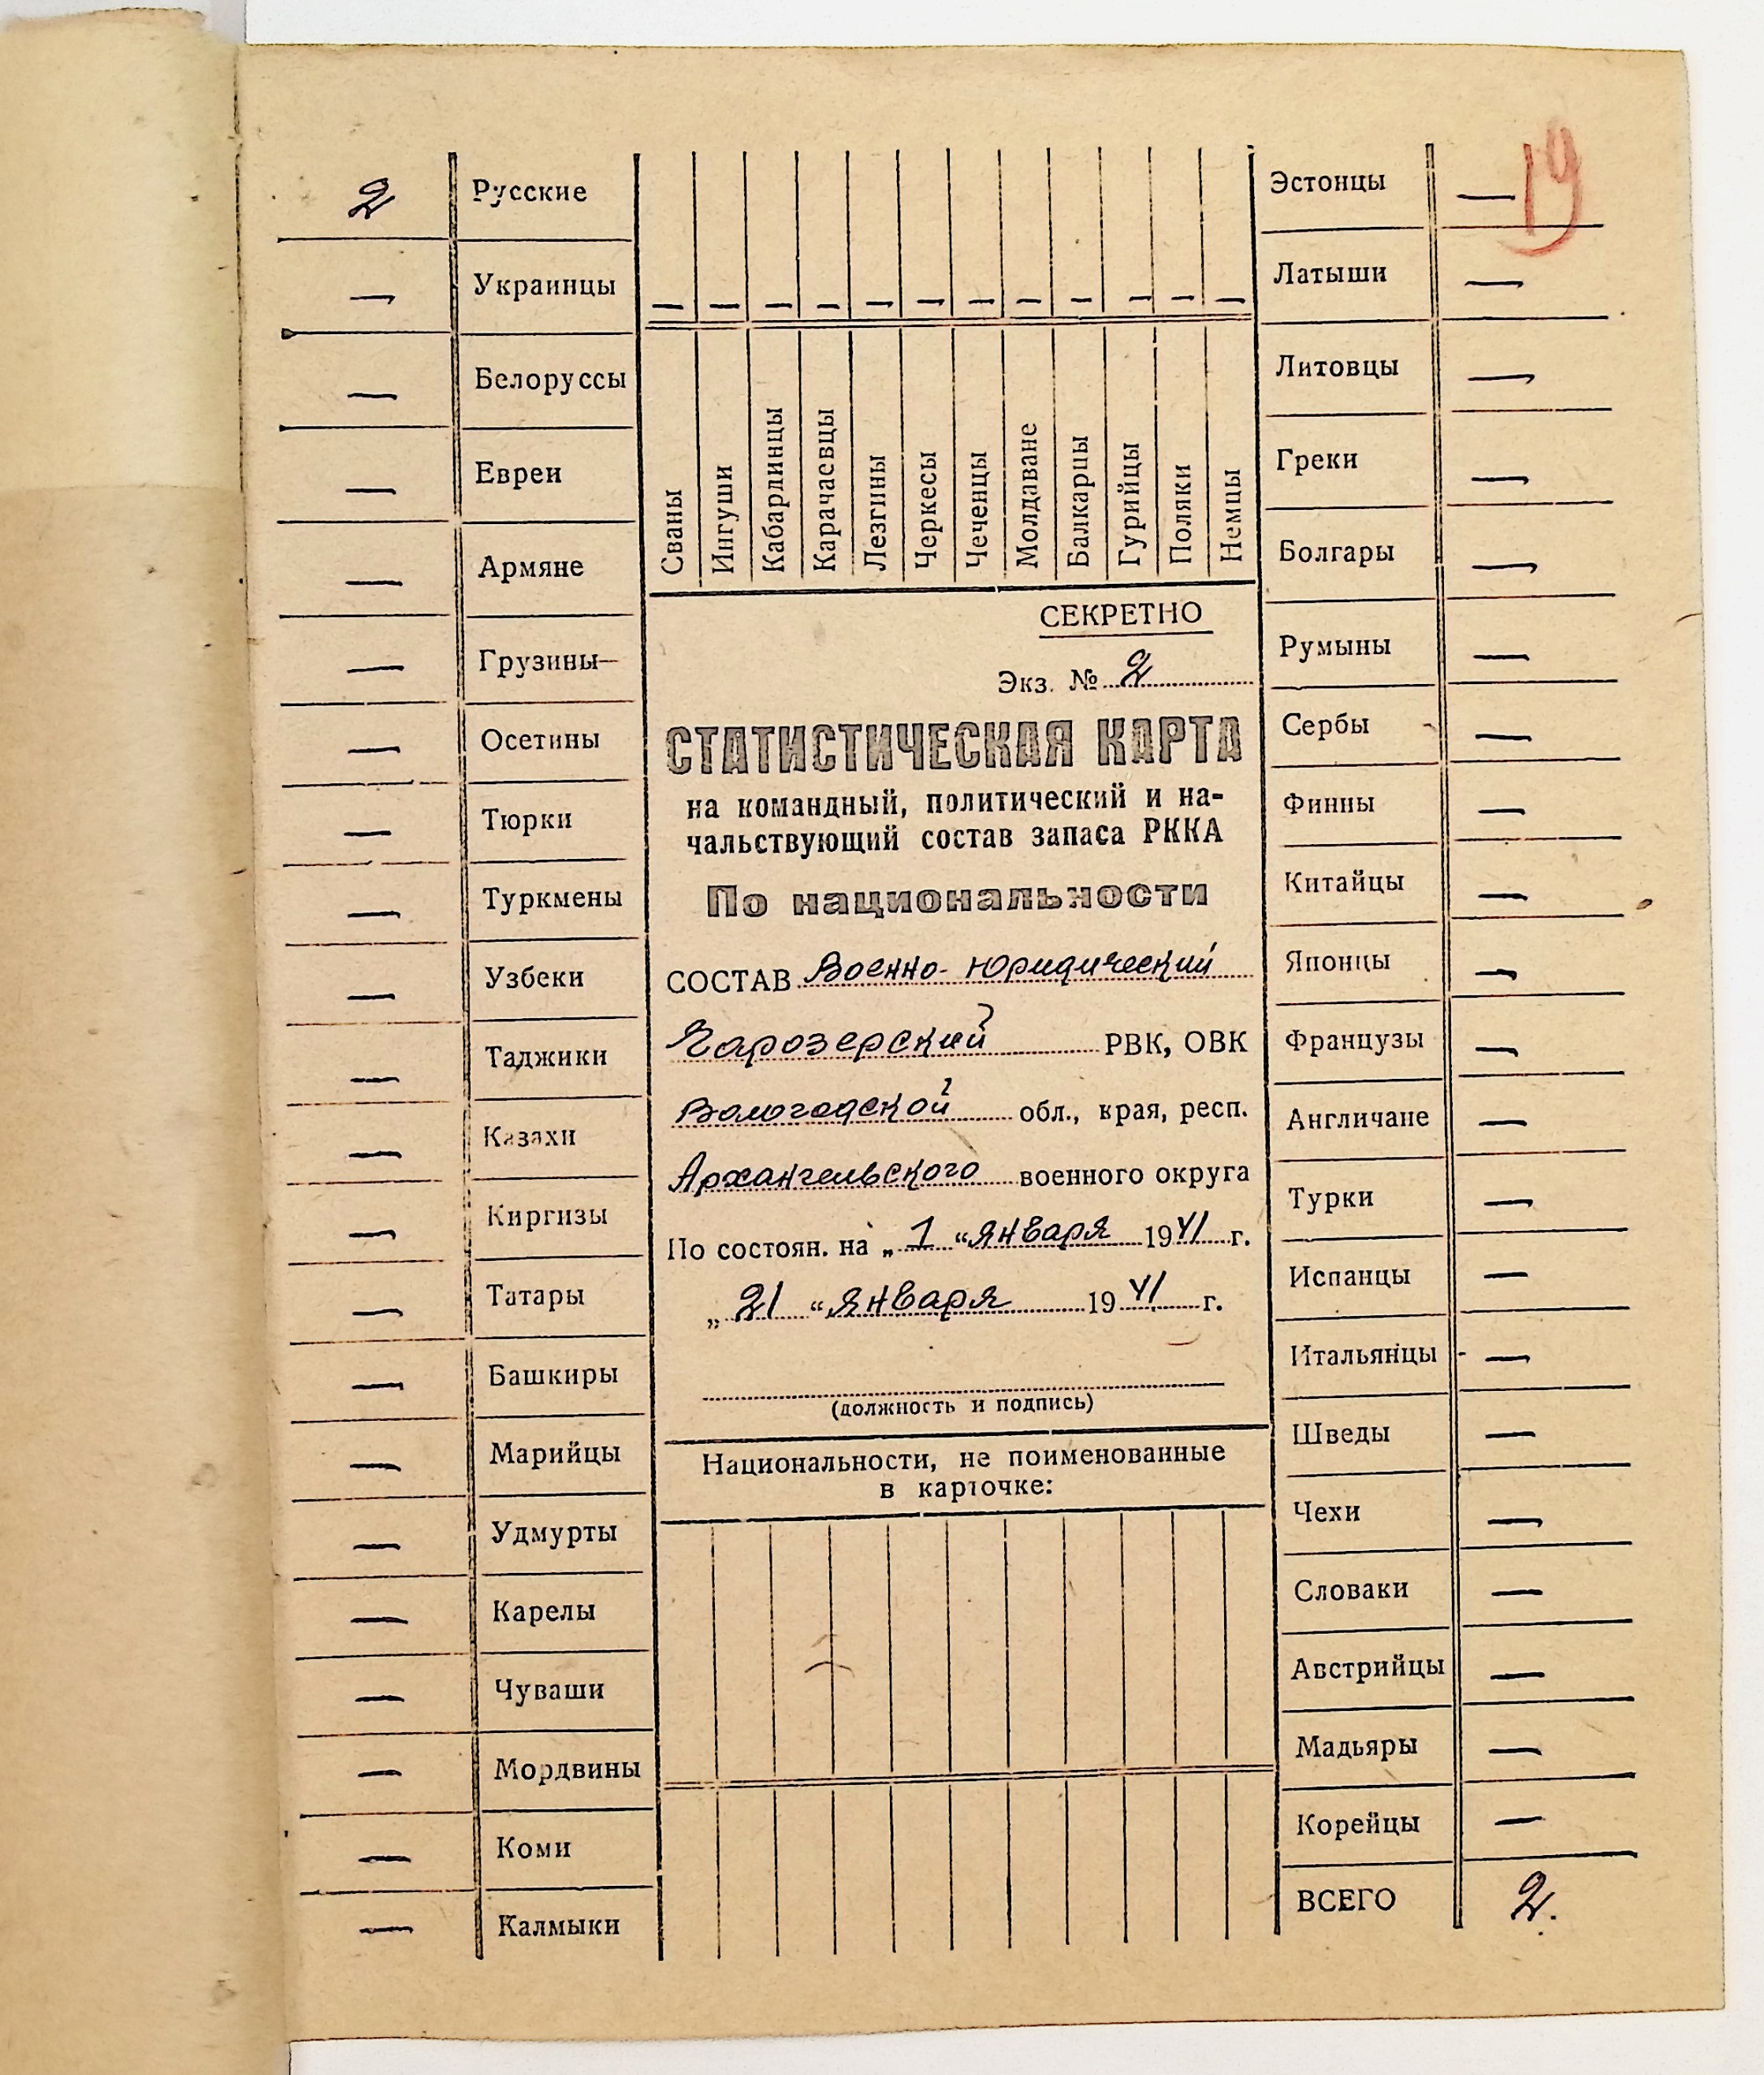 19
2 Русские
— Украинцы
— Белоруссы
— Евреи
— Армяне
— Грузины—
— Осетины
— Тюрки
— Туркмены
— Узбеки
— Таджики
— Казахи
— Киргизы
— Татары
— Башкиры
— Марийцы
— Удмурты
— Карелы
— Чуваши
— Мордвины
— Коми
— Калмыки
— — — — — — — — — — — —
Сваны
Ингуши
Кабардинцы
Карачаевцы
Лезгины
Черкесы
Чеченцы
Молдаване
Балкарцы
Гурийцы
Поляки
Немцы
СЕКРЕТНО
Экз. № 2
СТАТИСТИЧЕСКАЯ КАРТА
на командный, политический и на-
чальствующий состав запаса РККА
По национальности
СОСТАВ Военно-юридический
Чарозерский РВК, ОВК
Вологодской обл., края, респ.
Архангельского военного округа
По состоян. на „1“ января 1941 г.
„21“ января 1941 г.
(должность и подпись)
Национальности, не поименованные
в карточке:
Эстонцы —
Латыши —
Литовцы —
Греки —
Болгары —
Румыны —
Сербы —
Финны —
Китайцы —
Японцы —
Французы —
Англичане —
Турки —
Испанцы —
Итальянцы —
Шведы —
Чехи —
Словаки —
Австрийцы —
Мадьяры —
Корейцы —
ВСЕГО 2.